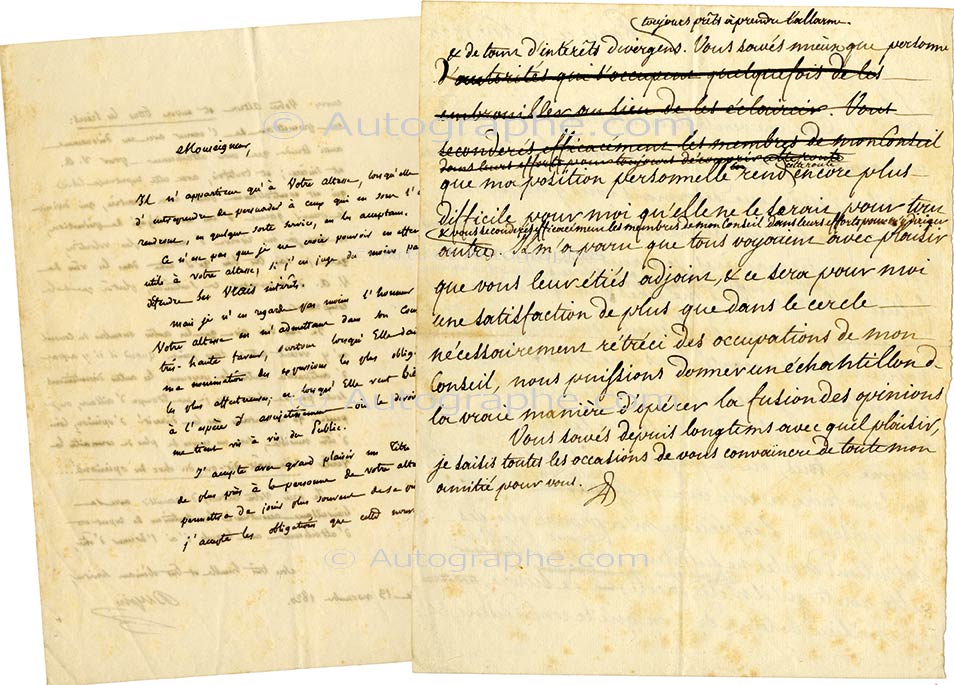 Monseigneur,
Il n'appartient qu'à Votre altesse, lorsqu'elle
d'entreprendre de persuader à ceux qui en sont l'
rendent, en quelque sorte, service, en les acceptant.
Ce n'est pas que je ne croie pouvoir en effet
utile à Votre altesse, si j'en juge du moins pa
défendre ses Vrais intérêts.
mais je n'en regarde pas moins l'honneur
Votre altesse en m'admettant dans son Con
très-haute faveur, surtout lorsqu'Elle dai
ma nomination des expressions les plus oblig
les plus affectueuses; et lorsqu'Elle veut bie
à l'espèce d'assujetissement où le devoir
me tient vis à vis du Public.
J'accepte avec grand plaisir un Titre
de plus près à la personne de votre alte
permettra de jouir plus souvent de sa
j'accepte les obligations que cette nouv
13 novembre 1820
toujours prêts à prendre l'allarme.
& de tant d'intérêts divergens. Vous savés mieux que personne
d'autorités qui s'occupent quelquefois de les
embrouiller au lieu de les éclaircir. Vous
seconderés efficacement les membres de mon Conseil
dans leurs efforts pour toujours découvrir cette route
cette route
que ma position personnelle rend encore plus
difficile pour moi qu'elle ne le serait pour tout
& vous seconderés efficacement les membres de mon Conseil dans leurs efforts pour m'y diriger
autre. Il m'a paru que tous voyaient avec plaisir
que vous leur étiés adjoint, & ce sera pour moi
une satisfaction de plus que dans le cercle
nécessairement rétréci des occupations de mon
Conseil, nous puissions donner un échantillon de
la vraie manière d'opérer la fusion des opinions
Vous savés depuis longtems avec quel plaisir,
je saisis toutes les occasions de vous convaincre de toute mon
amitié pour vous.
© Autographe.com
© Autographe.com
© Autographe.com